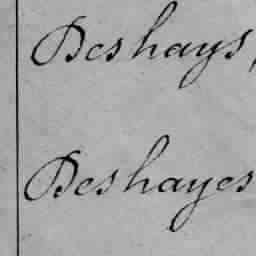 Deshays,
Deshayes